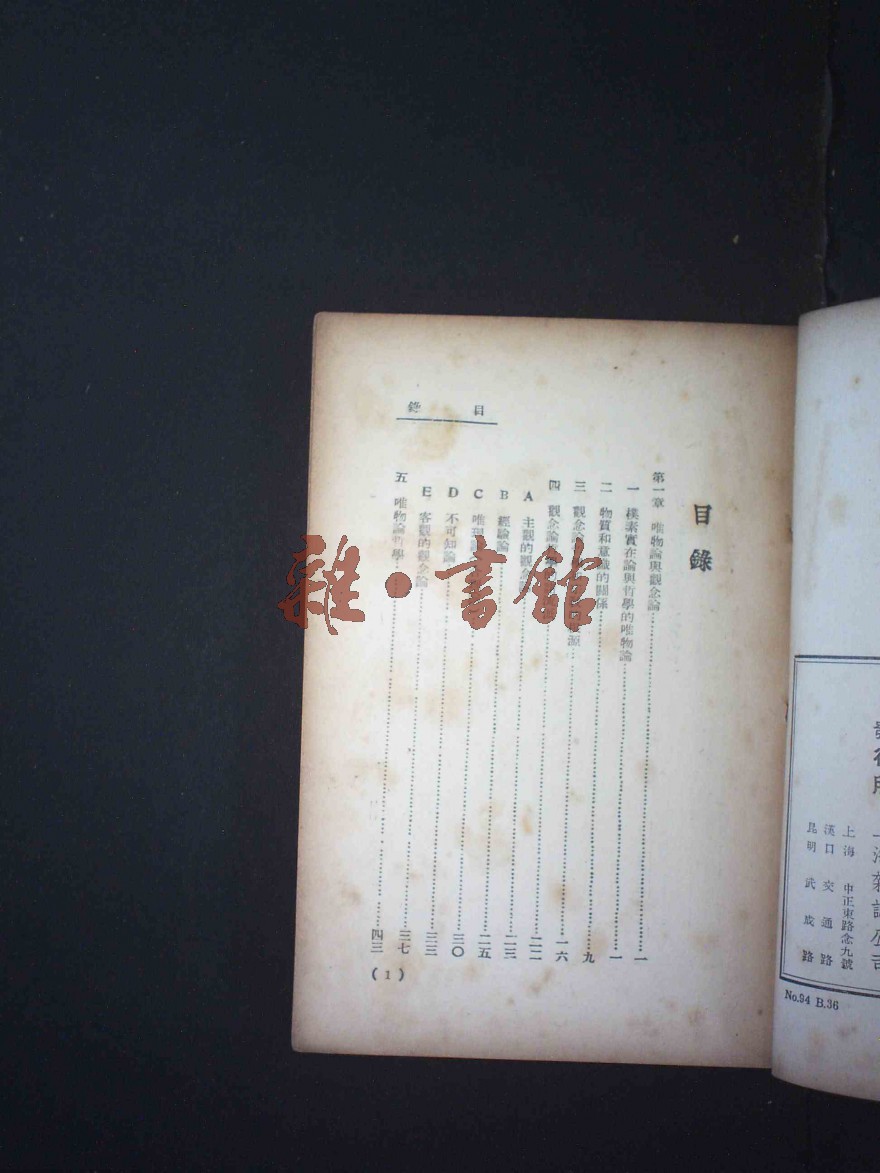 目錄
目錄
第一章 唯物論與觀念論……一
一 樸素實在論與哲學的唯物論……一
二 物質和意識的關係……九
三 觀念論……源……一六
四 觀念論……二二
A 主觀的觀念……二三
B 經驗論……二五
C 唯理……三〇
D 不可知論……三三
E 客觀的觀念論……三七
五 唯物論哲學……四三
(1)
雜·書館
上海 中正東路念九號
漢口 交通路
昆明 武成路
No.94 B.36